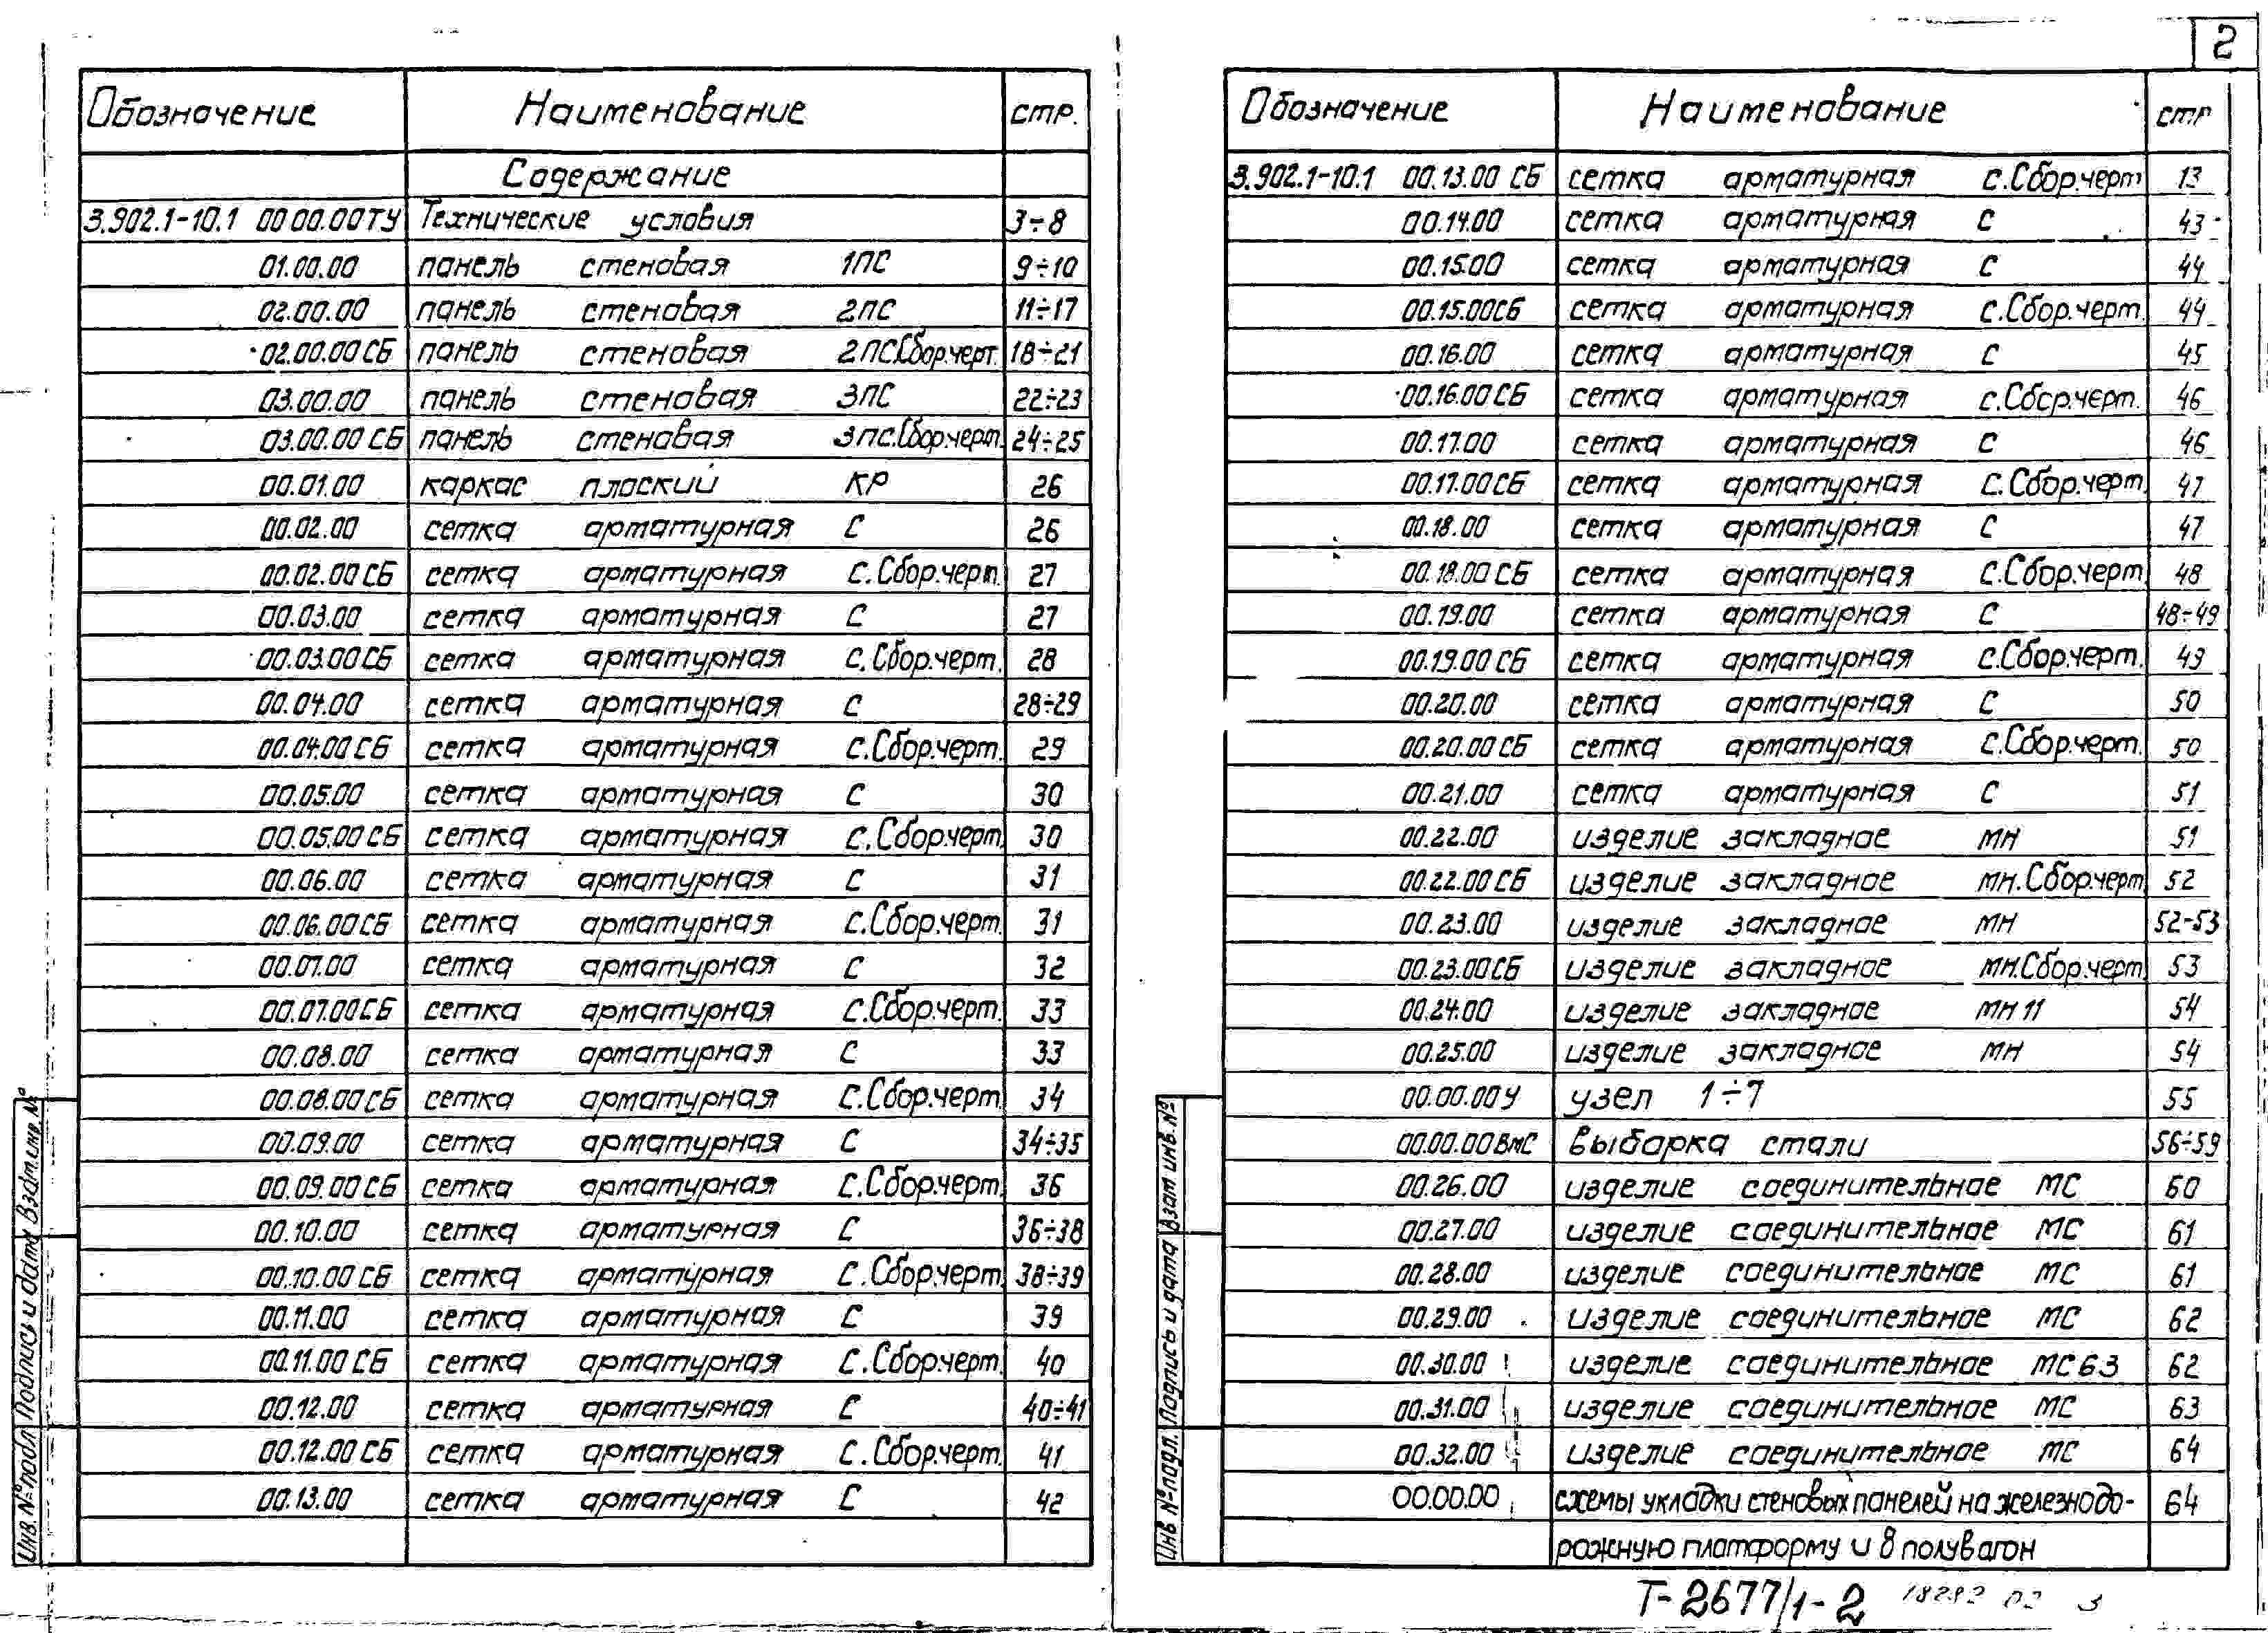 2
Обозначение Наименование стр.
Содержание
3.902.1-10.1 00.00.00ТУ Технические условия 3÷8
01.00.00 панель стеновая 1ПС 9÷10
02.00.00 панель стеновая 2ПС 11÷17
02.00.00 СБ панель стеновая 2ПС.Сбор.черт. 18÷21
03.00.00 панель стеновая 3ПС 22÷23
03.00.00 СБ панель стеновая 3ПС.Сбор.черт. 24÷25
00.01.00 каркас плоский КР 26
00.02.00 сетка арматурная С 26
00.02.00 СБ сетка арматурная С.Сбор.черт. 27
00.03.00 сетка арматурная С 27
00.03.00 СБ сетка арматурная С.Сбор.черт. 28
00.04.00 сетка арматурная С 28÷29
00.04.00 СБ сетка арматурная С.Сбор.черт. 29
00.05.00 сетка арматурная С 30
00.05.00 СБ сетка арматурная С.Сбор.черт. 30
00.06.00 сетка арматурная С 31
00.06.00 СБ сетка арматурная С.Сбор.черт. 31
00.07.00 сетка арматурная С 32
00.07.00 СБ сетка арматурная С.Сбор.черт. 33
00.08.00 сетка арматурная С 33
00.08.00 СБ сетка арматурная С.Сбор.черт. 34
00.09.00 сетка арматурная С 34÷35
00.09.00 СБ сетка арматурная С.Сбор.черт. 36
00.10.00 сетка арматурная С 36÷38
00.10.00 СБ сетка арматурная С.Сбор.черт. 38÷39
00.11.00 сетка арматурная С 39
00.11.00 СБ сетка арматурная С.Сбор.черт. 40
00.12.00 сетка арматурная С 40÷41
00.12.00 СБ сетка арматурная С.Сбор.черт. 41
00.13.00 сетка арматурная С 42
Инв. № подл Подпись и дата Взам.инв.№
Обозначение Наименование стр
3.902.1-10.1 00.13.00 СБ сетка арматурная С.Сбор.черт 13
00.14.00 сетка арматурная С 43
00.15.00 сетка арматурная С 44
00.15.00СБ сетка арматурная С.Сбор.черт. 44
00.16.00 сетка арматурная С 45
00.16.00 СБ сетка арматурная С.Сбор.черт. 46
00.17.00 сетка арматурная С 46
00.17.00СБ сетка арматурная С.Сбор.черт. 47
00.18.00 сетка арматурная С 47
00.18.00 СБ сетка арматурная С.Сбор.черт 48
00.19.00 сетка арматурная С 48÷49
00.19.00 СБ сетка арматурная С.Сбор.черт. 49
00.20.00 сетка арматурная С 50
00.20.00 СБ сетка арматурная С.Сбор.черт. 50
00.21.00 сетка арматурная С 51
00.22.00 изделие закладное МН 51
00.22.00 СБ изделие закладное МН.Сбор.черт 52
00.23.00 изделие закладное МН 52-53
00.23.00СБ изделие закладное МН.Сбор.черт 53
00.24.00 изделие закладное МН 11 54
00.25.00 изделие закладное МН 54
00.00.00У узел 1÷7 55
00.00.00 ВМС выборка стали 56÷59
00.26.00 изделие соединительное МС 60
00.27.00 изделие соединительное МС 61
00.28.00 изделие соединительное МС 61
00.29.00 изделие соединительное МС 62
00.30.00 изделие соединительное МС63 62
00.31.00 изделие соединительное МС 63
00.32.00 изделие соединительное МС 64
00.00.00 схемы укладки стеновых панелей на железнодо- 64
рожную платформу и в полувагон
Инв № подл. Подпись и дата Взам инв.№
Т-2677/1-2 3